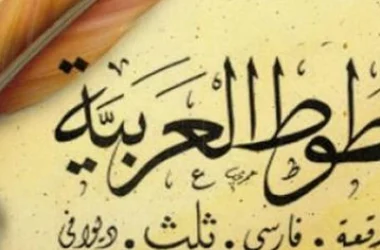 طوط العربيّة
قعة . فارسي . ثلث . ديواني